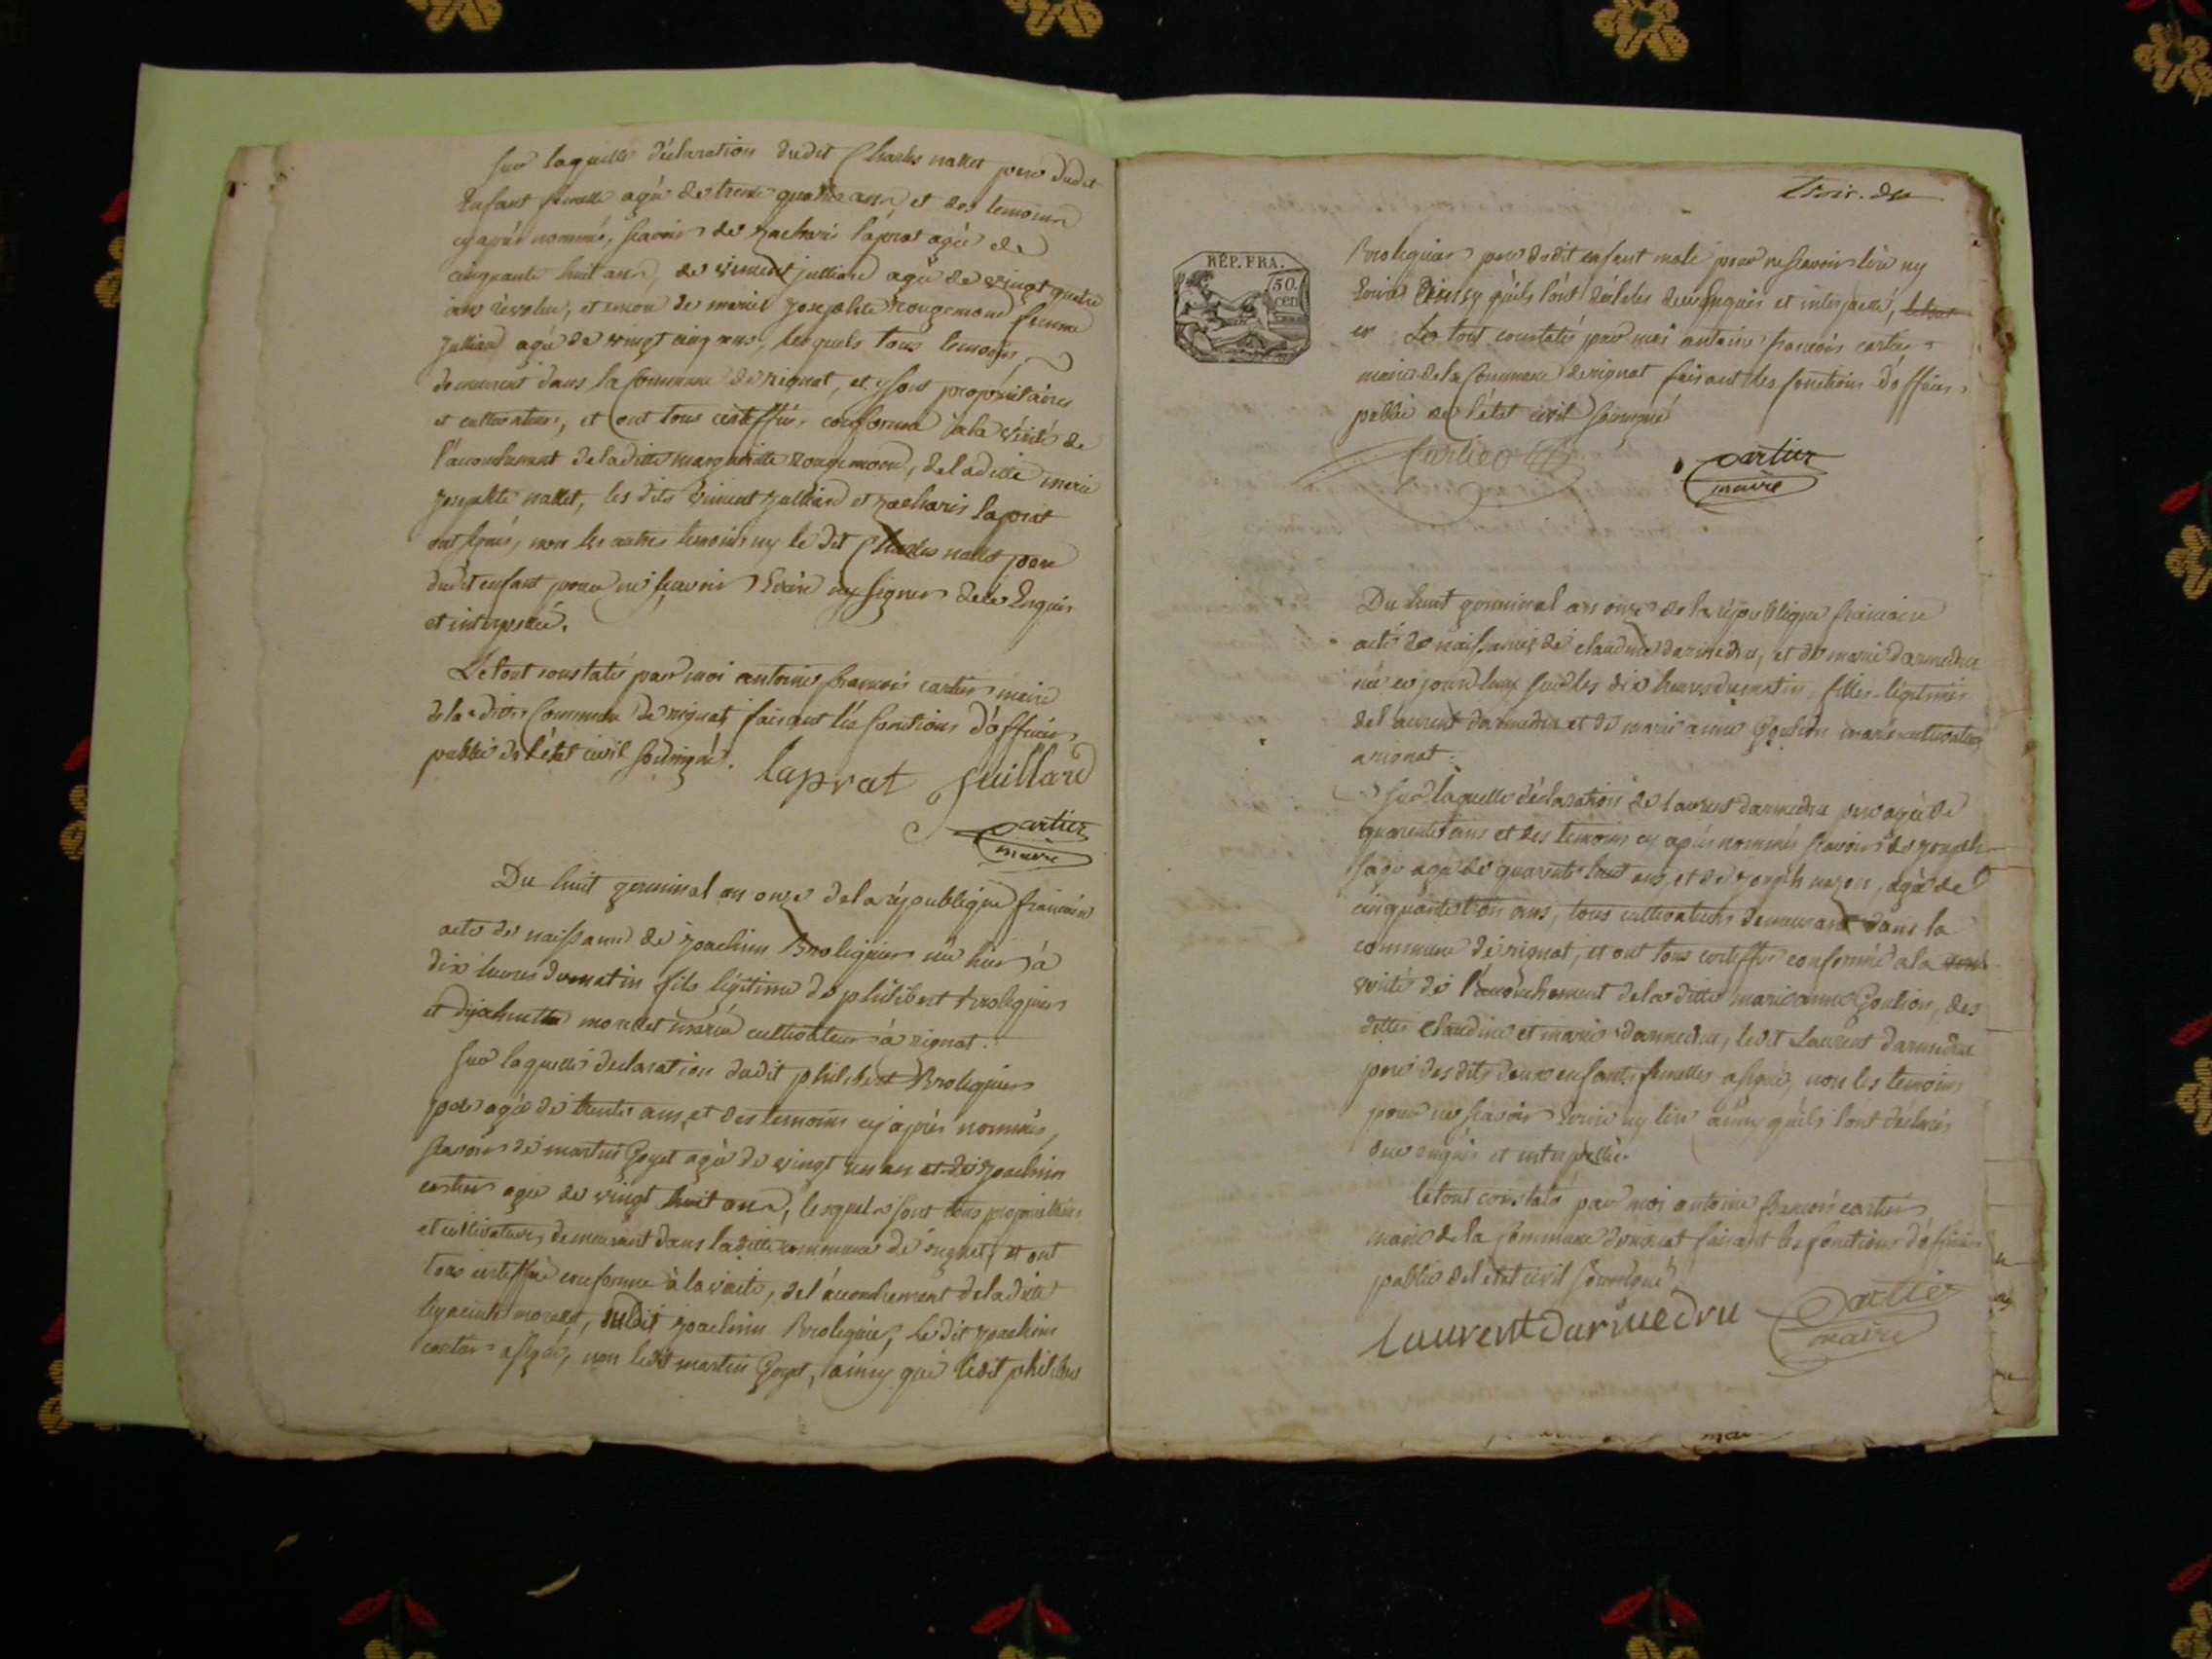 sur laquelle déclaration dudit Charles nallet pere dudit
Enfant femelle agé de trente quatre ans, et des temoins
cy après nommés, scavoir de zacharie laprat agé de
cinquante huit ans, de vincent julliard agé de vingt quatre
ans révolus, et encore de marie josephte rougemond femme
julliard agé de vingt cinq ans, lesquels tous temoins
demeurent dans la Commune de rignat, et sont propriétaires
et cultivateurs, et ont tous certiffiés conforme à la vérité de
l'accouchement de laditte margueritte rougemond, de laditte marie
josephte nallet, les dits vincent julliard et zacharie laprat
ont signés, non les autres temoins ny le dit Charles nallet pere
dudit enfant pour ne scavoir Ecrire ny signer de ce Enquis
et interpellé.
Le tout constaté par moi antoine francois cartier maire
de la ditte Commune de rignat faisant les fonctions d'officier
public de l'état civil soussigné.
laprat juillard
cartier
maire
Du huit germinal an onze de la république francaise
acte de naissance de joachim Broliquier né hier à
dix heures du matin fils légitime de philibert Broliquier
et morellet mariés cultivateurs à rignat.
sur laquelle declaration dudit philibert Broliquier
pere agée de trente ans, et des temoins cy après nommés,
scavoir de martin Goyet agé de vingt un an et de joachim
cartier agé de vingt huit ans, lesquels sont tous propriétaires
et cultivateurs demeurant dans laditte commune de rignat, et ont
tous certiffié conforme à la vérité, de l'accouchement de laditte
hyacinte morellet, dudit joachim Broliquier, le dit joachim
cartier a signé, non ledit martin Goyet, ainsy que ledit philibert
Broliquier pere dudit enfant male pour ne scavoir lire ny
Ecrire ainsy qu'ils l'ont déclarés de ce Enquis et interpellé, le tout
Le tout constaté par moi antoine francois cartier
maire de la Commune de rignat faisant les fonctions d'officier
public de l'état civil soussigné
cartier
cartier
maire
RÉP. FRA.
50.
cen
Du huit germinal an onze de la république francaise
acte de naissance de claudine darmedru, et de marie darmedru
née ce jourd'huy sur les dix heures du matin, filles légitimes
de laurent darmedru et de marie anne Goulion mariés cultivateurs
a rignat.
sur laquelle déclaration de laurent darmedru pere agé de
quarente ans et des temoins cy après nommés scavoir de joseph
agé de quarente huit ans, et de joseph, agé de
cinquante trois ans, tous cultivateurs demeurant dans la
commune de rignat, et ont tous certiffié conforme a la
vérité de l'accouchement de la ditte marie anne Goulion, des
dittes claudine et marie darmedru, ledit Laurent darmedru
pere des dits deux enfants femelles a signé, non les temoins
pour ne scavoir Ecrire ny lire ainsy qu'ils l'ont declarés
de ce enquis et interpellé.
le tout constaté par moi antoine francois cartier
maire de la Commune de rignat faisant les fonctions d'officier
public de l'état civil soussigné
laurent darmedru
cartier
maire